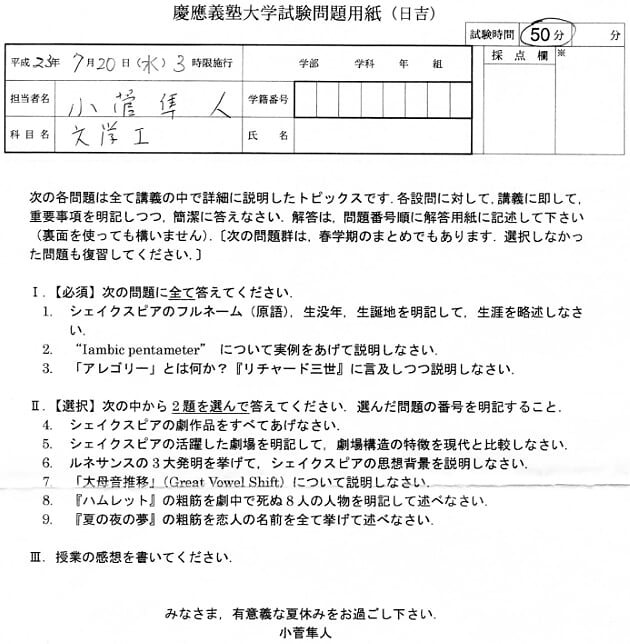 慶應義塾大学試験問題用紙（日吉）
試験時間 50分 分
平成 23年 7月20日（水）3時限施行 学部 学科 年 組 採点欄 ※
担当者名 小菅隼人 学籍番号
科目名 文学I 氏名
次の各問題は全て講義の中で詳細に説明したトピックスです．各設問に対して，講義に即して，
重要事項を明記しつつ，簡潔に答えなさい．解答は，問題番号順に解答用紙に記述して下さい
（裏面を使っても構いません）．〔次の問題群は，春学期のまとめでもあります．選択しなかっ
た問題も復習してください．〕
Ⅰ．【必須】次の問題に全て答えてください．
1. シェイクスピアのフルネーム（原語），生没年，生誕地を明記して，生涯を略述しなさ
い．
2. “Iambic pentameter” について実例をあげて説明しなさい．
3. 「アレゴリー」とは何か？『リチャード三世』に言及しつつ説明しなさい．
Ⅱ．【選択】次の中から２題を選んで答えてください．選んだ問題の番号を明記すること．
4. シェイクスピアの劇作品をすべてあげなさい．
5. シェイクスピアの活躍した劇場を明記して，劇場構造の特徴を現代と比較しなさい．
6. ルネサンスの３大発明を挙げて，シェイクスピアの思想背景を説明しなさい．
7. 「大母音推移」（Great Vowel Shift）について説明しなさい．
8. 『ハムレット』の粗筋を劇中で死ぬ８人の人物を明記して述べなさい．
9. 『夏の夜の夢』の粗筋を恋人の名前を全て挙げて述べなさい．
Ⅲ．授業の感想を書いてください．
みなさま，有意義な夏休みをお過ごし下さい．
小菅隼人